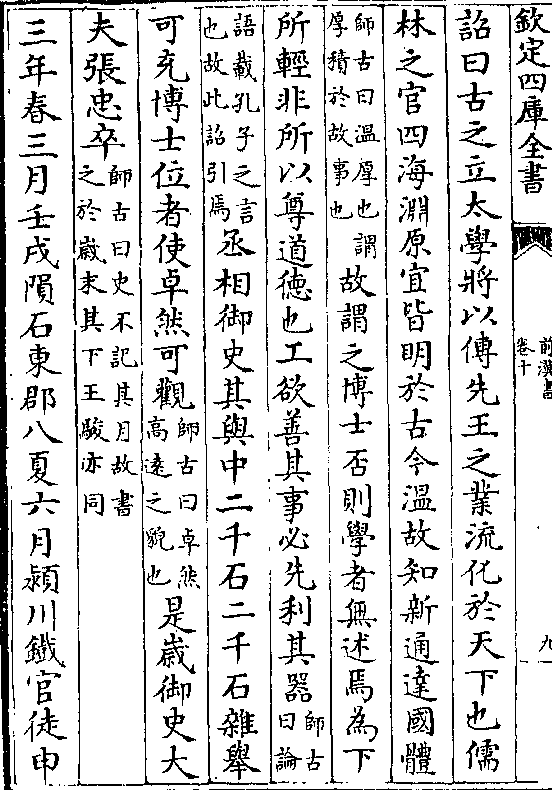 欽定四庫全書
前漢書
卷十
九
詔曰古之立太學將以傳先王之業流化於天下也儒
林之官四海淵原宜皆明於古今溫故知新通達國體
師古曰溫厚也謂
厚積於故事也
故謂之博士否則學者無述焉為下
所輕非所以尊道德也工欲善其事必先利其器
師古
曰論
語載孔子之言
也故此詔引焉
丞相御史其與中二千石二千石雜舉
可充博士位者使卓然可觀
師古曰卓然
高遠之貌也
是歲御史大
夫張忠卒
師古曰史不記其月故書
之於歲末其下王駿亦同
三年春三月壬戌隕石東郡八夏六月潁川鐵官徒申